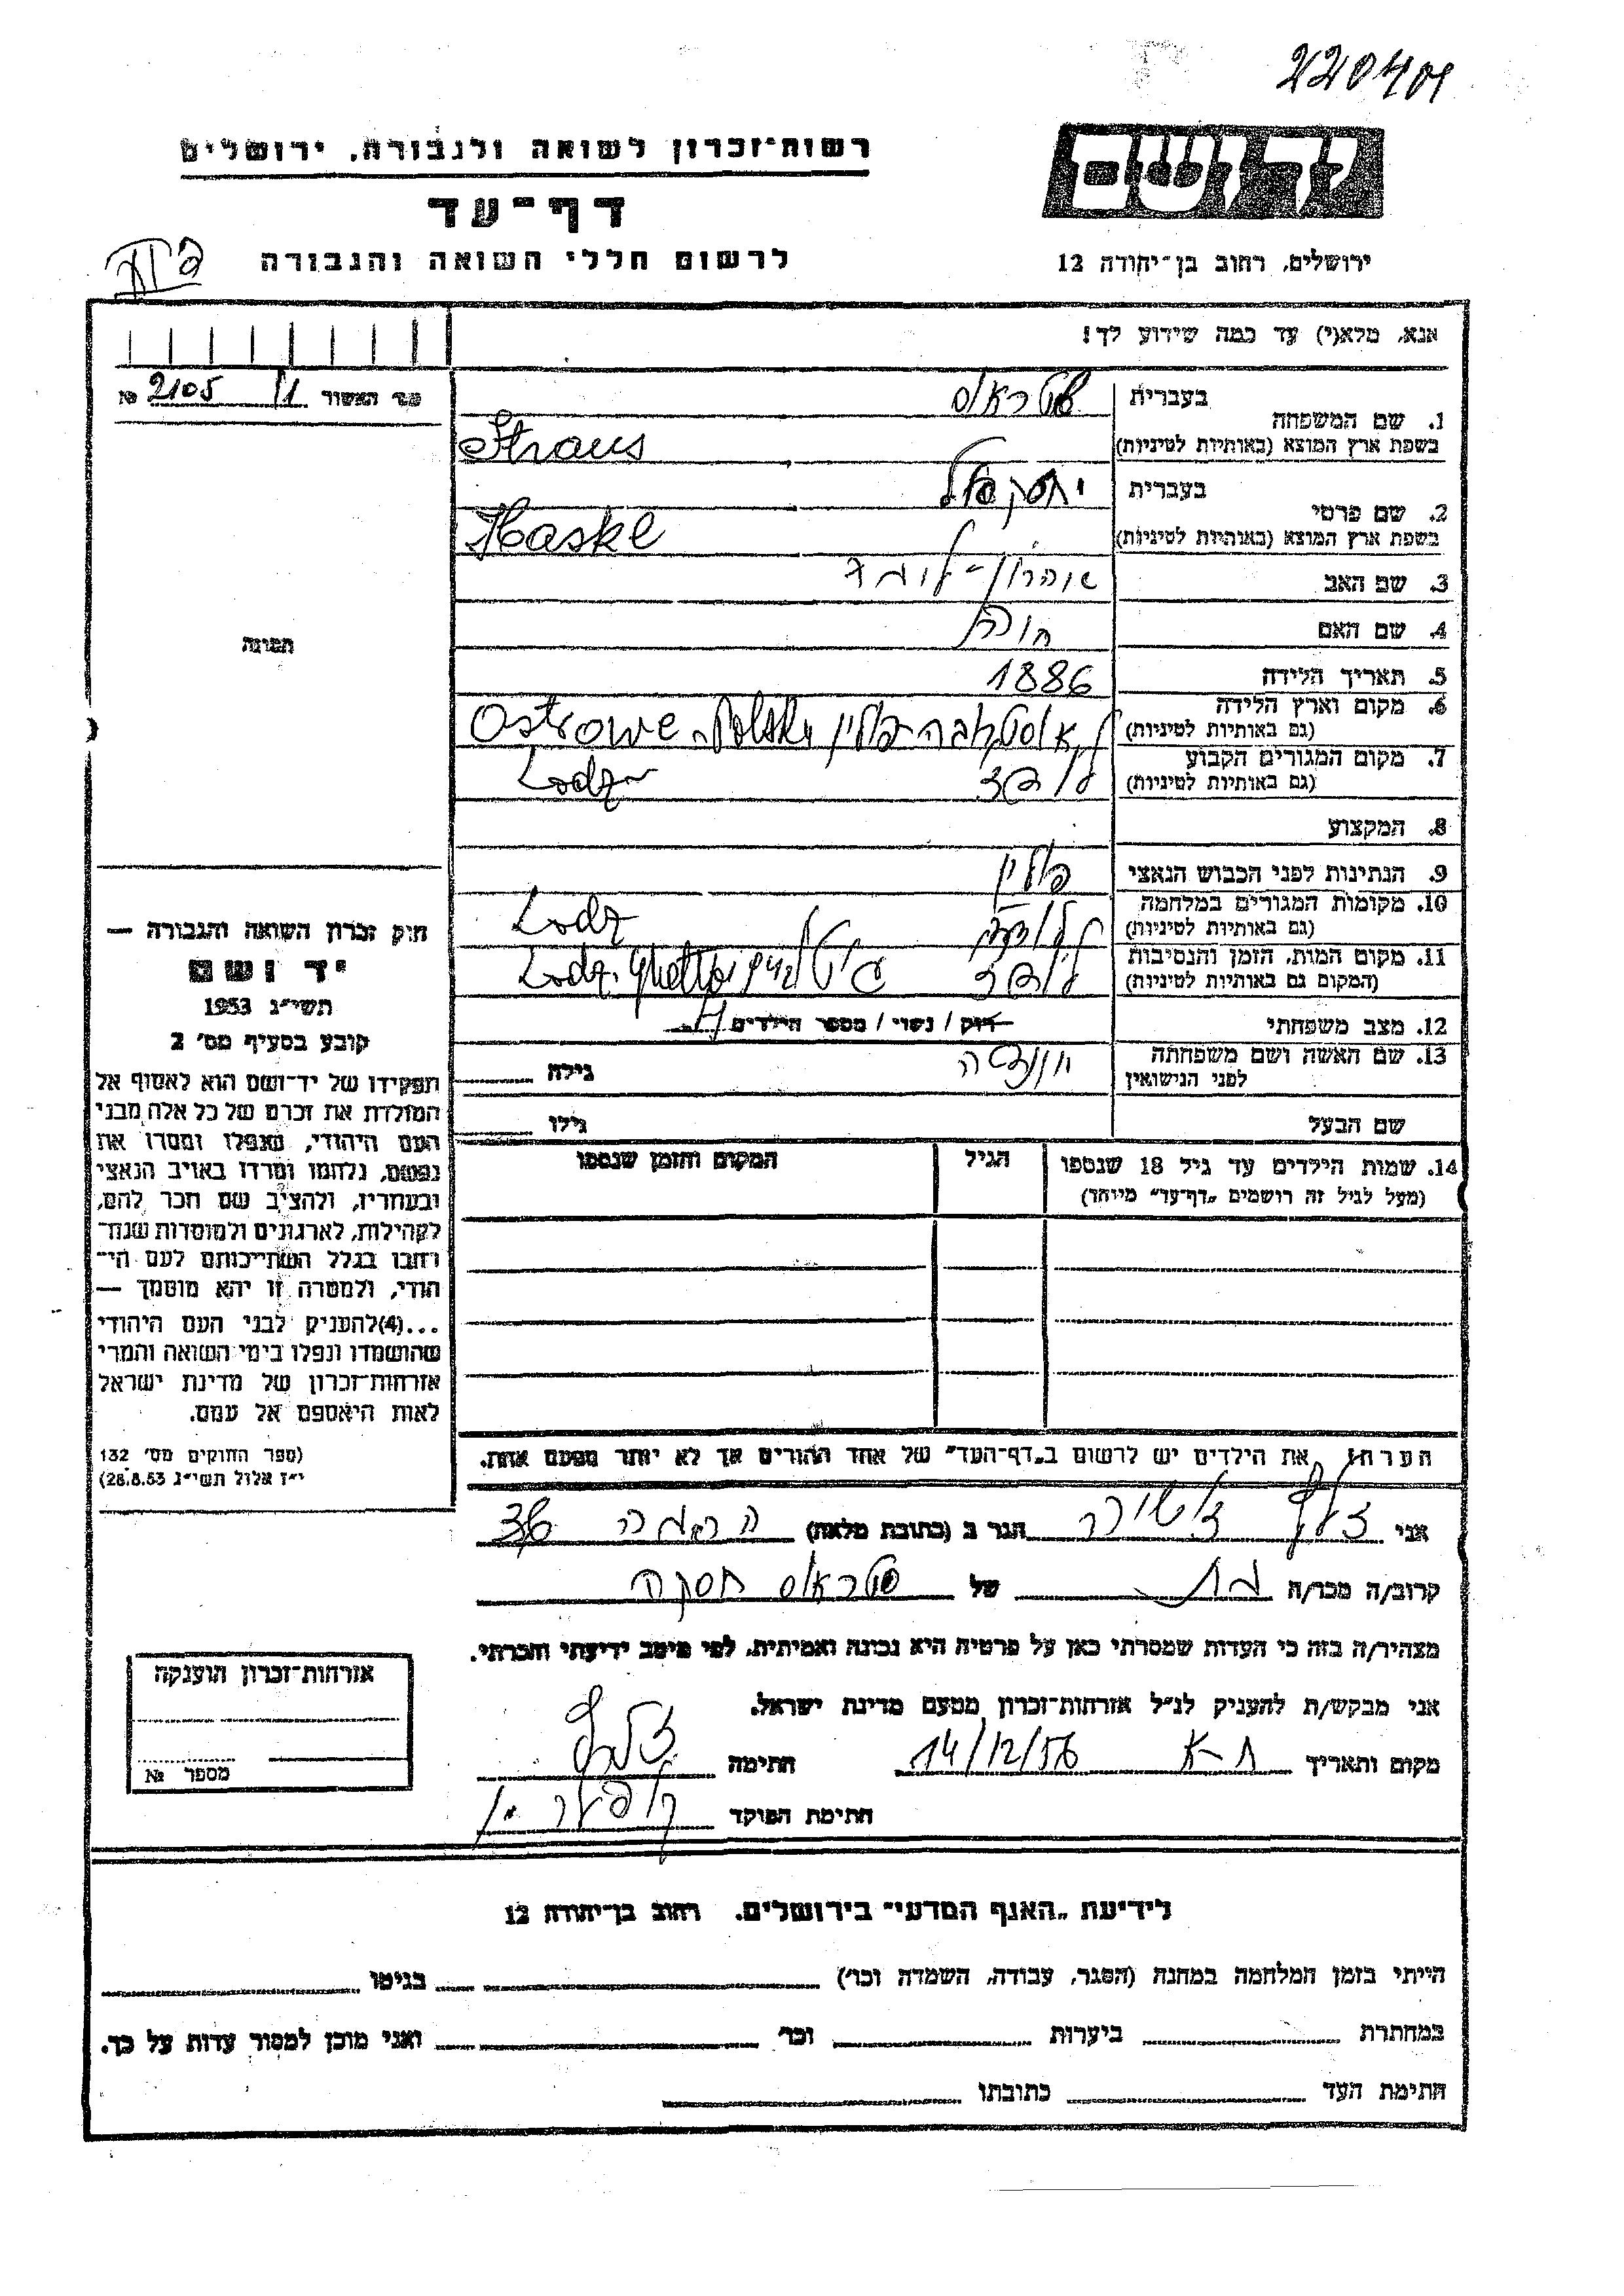 220401
רשות־זכרון לשואה ולגבורה, ירושלים
דף־עד
לרשום חללי השואה והגבורה
יד ושם
ירושלים, רחוב בן־יהודה 12
אנא, מלא(י) עד כמה שידוע לך!
מס׳ האשור 11 2105 №
תמונה
1. שם המשפחה בעברית שטראוס
בשפת ארץ המוצא (באותיות לטיניות) Straus
2. שם פרטי בעברית יחסקאל
בשפת ארץ המוצא (באותיות לטיניות) Haskl
3. שם האב
4. שם האם חוה
5. תאריך הלידה 1886
6. מקום וארץ הלידה
(גם באותיות לטיניות) Ostrowe Polska
7. מקום המגורים הקבוע לודז
(גם באותיות לטיניות) Lodz
8. המקצוע
9. הנתינות לפני הכבוש הנאצי פולין
10. מקומות המגורים במלחמה
(גם באותיות לטיניות) Lodz
11. מקום המות, הזמן והנסיבות לודז
(המקום גם באותיות לטיניות) Lodz. ghetto
12. מצב משפחתי רווק / נשוי / מספר הילדים
13. שם האשה ושם משפחתה
לפני הנישואין גילה
שם הבעל גילו
14. שמות הילדים עד גיל 18 שנספו הגיל המקום והזמן שנספו
(מעל לגיל זה רושמים „דף־עד״ מיוחד)
הערה: את הילדים יש לרשום ב„דף־העד״ של אחד ההורים אך לא יותר מפעם אחת.
חוק זכרון השואה והגבורה —
יד ושם
תשי״ג 1953
קובע בסעיף מס׳ 2
תפקידו של יד־ושם הוא לאסוף אל
המולדת את זכרם של כל אלה מבני
העם היהודי, שנפלו ומסרו את
נפשם, נלחמו ומרדו באויב הנאצי
ובעוזריו, ולהציב שם וזכר להם,
לקהילות, לארגונים ולמוסדות שנח־
רבו בגלל השתייכותם לעם הי־
הודי, ולמטרה זו יהא מוסמך —
...(4)להעניק לבני העם היהודי
שהושמדו ונפלו בימי השואה והמרי
אזרחות־זכרון של מדינת ישראל
לאות היאספם אל עמם.
(ספר החוקים מס׳ 132
י״ז אלול תשי״ג 28.8.53)
אני הגר ב (כתובת מלאה)
קרוב/ה מכר/ה בת של שטראוס חסקה
מצהיר/ה בזה כי העדות שמסרתי כאן על פרטיה היא נכונה ואמיתית, לפי מיטב ידיעתי והכרתי.
אני מבקש/ת להעניק לנ״ל אזרחות־זכרון מטעם מדינת ישראל.
מקום ותאריך ת-א 14/12/56 חתימה
חתימת הפוקד
אזרחות־זכרון הוענקה
מספר №
לידיעת „האגף המדעי״ בירושלים, רחוב בן־יהודה 12
הייתי בזמן המלחמה במחנה (הסגר, עבודה, השמדה וכו׳) בגיטו
במחתרת ביערות וכו׳ ואני מוכן למסור עדות על כך.
חתימת העד כתובתו